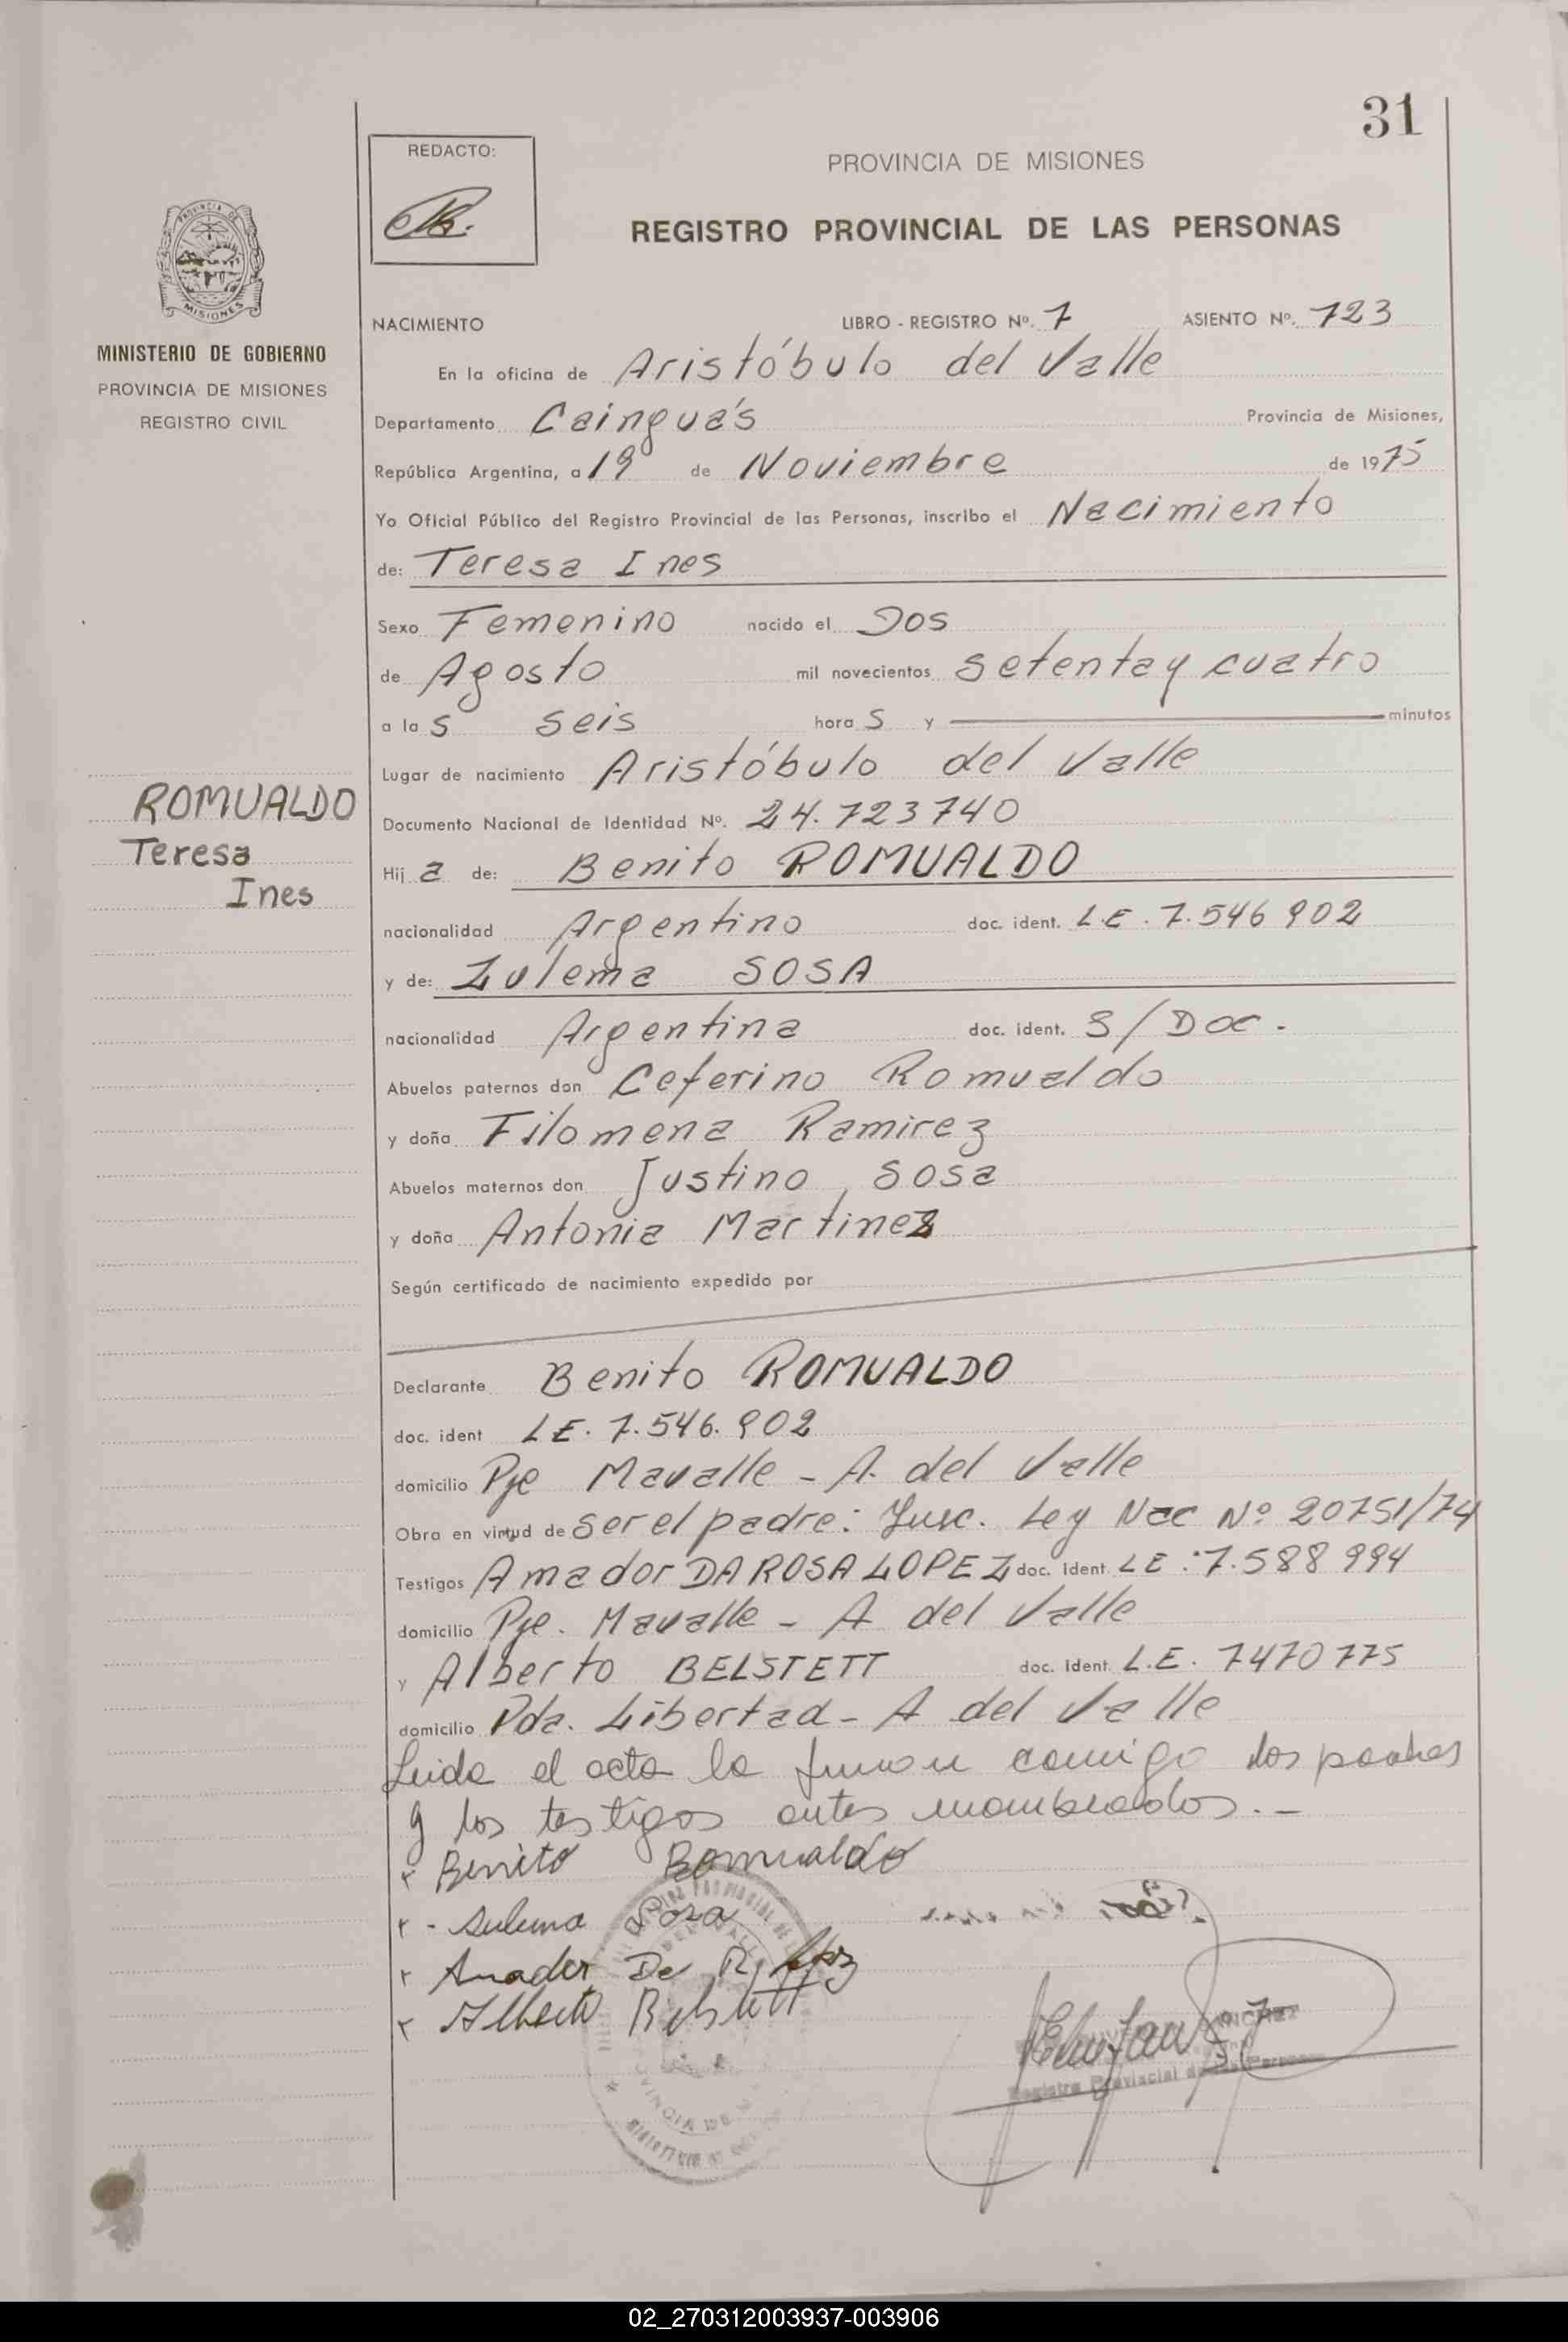 31
REDACTO:
PROVINCIA DE MISIONES
REGISTRO PROVINCIAL DE LAS PERSONAS
PROVINCIA DE
MISIONES
MINISTERIO DE GOBIERNO
PROVINCIA DE MISIONES
REGISTRO CIVIL
NACIMIENTO LIBRO - REGISTRO Nº. 7 ASIENTO Nº. 723
En la oficina de Aristóbulo del Valle
Departamento Cainguás Provincia de Misiones,
República Argentina, a 19 de Noviembre de 1975
Yo Oficial Público del Registro Provincial de las Personas, inscribo el Nacimiento
de: Teresa Ines
Sexo Femenino nacido el Dos
de Agosto mil novecientos setenta y cuatro
a las seis horas y minutos
Lugar de nacimiento Aristóbulo del Valle
ROMUALDO
Teresa
Ines
Documento Nacional de Identidad Nº. 24.723740
Hija de: Benito ROMUALDO
nacionalidad Argentino doc. ident. L.E. 7.546 902
y de: Zulema SOSA
nacionalidad Argentina doc. ident. S/Doc.
Abuelos paternos don Ceferino Romualdo
y doña Filomena Ramirez
Abuelos maternos don Justino Sosa
y doña Antonia Martinez
Según certificado de nacimiento expedido por
Declarante Benito ROMUALDO
doc. ident LE. 7.546.902
domicilio Pje Mavalle - A. del Valle
Obra en virtud de ser el padre: Insc. Ley Nac Nº 20751/74
Testigos Amador DA ROSA LOPEZ doc. Ident. LE: 7.588 994
domicilio Pje. Mavalle - A del Valle
y Alberto BELSTETT doc. Ident. L.E. 7470775
domicilio Pda. Libertad - A del Valle
Leida el acta la firman comigo los padres
y los testigos antes mombrados.-
x Benito Romualdo
x - Sulema Sosa
x Amador Da R. Lopez
x Alberto Belstett
Registro Provincial de las Personas
02_270312003937-003906